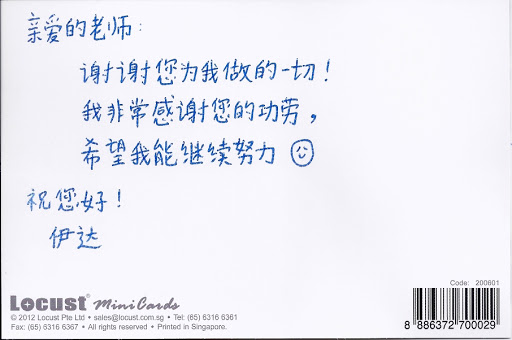 亲爱的老师:
谢谢您为我做的一切!
我非常感谢您的功劳,
希望我能继续努力
祝您好!
伊达
Code: 200801
Locust® MiniCards
© 2012 Locust Pte Ltd • sales@locust.com.sg • Tel: (65) 6316 6361
Fax: (65) 6316 6367 • All rights reserved • Printed in Singapore.
8 886372 700029